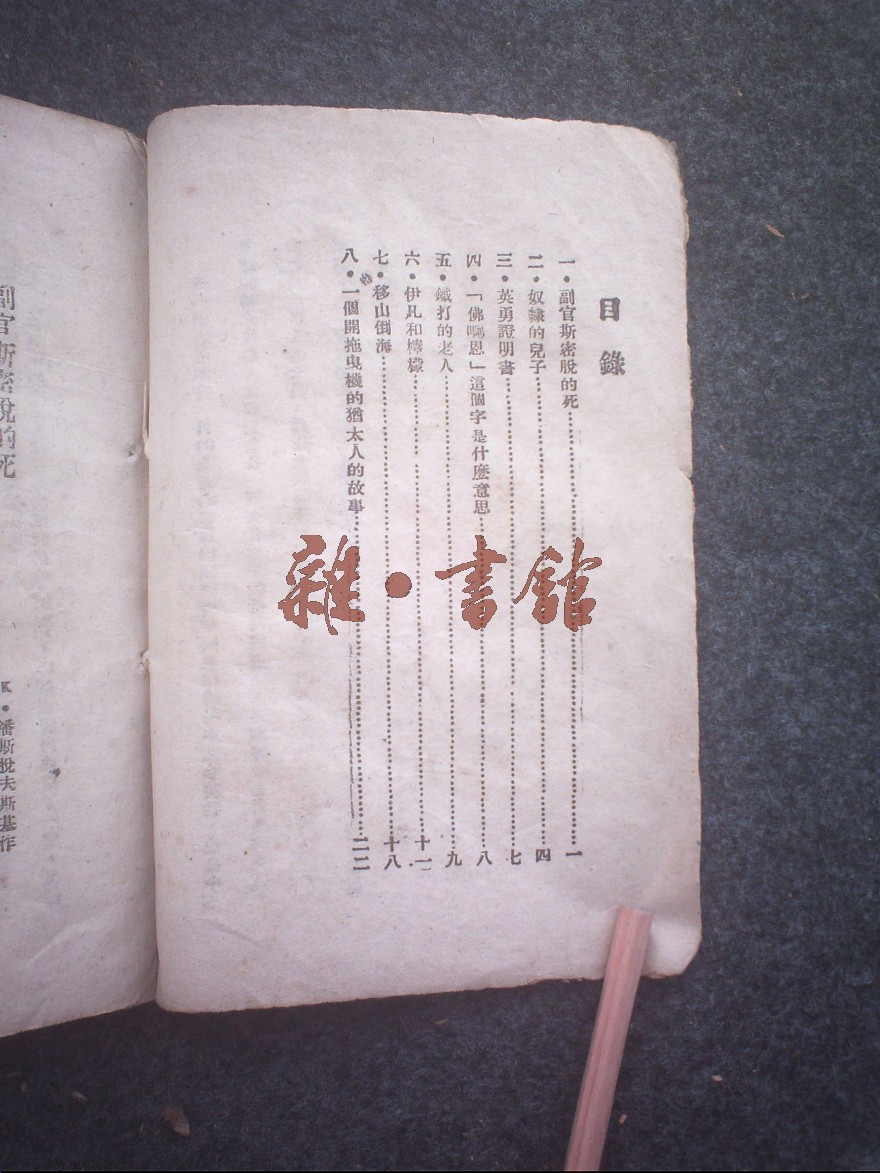 目錄
一・副官斯密脫的死……一
二・奴隸的兒子……四
三・英勇證明書……七
四・「佛啊恩」這個字是什麼意思……八
五・鐵打的老人……九
六・伊凡和檸檬……十一
七・移山倒海……十八
八・一個開拖曳機的猶太人的故事……二二
雜・書館
副官斯密脫的死
K・潘斯脫夫斯基作